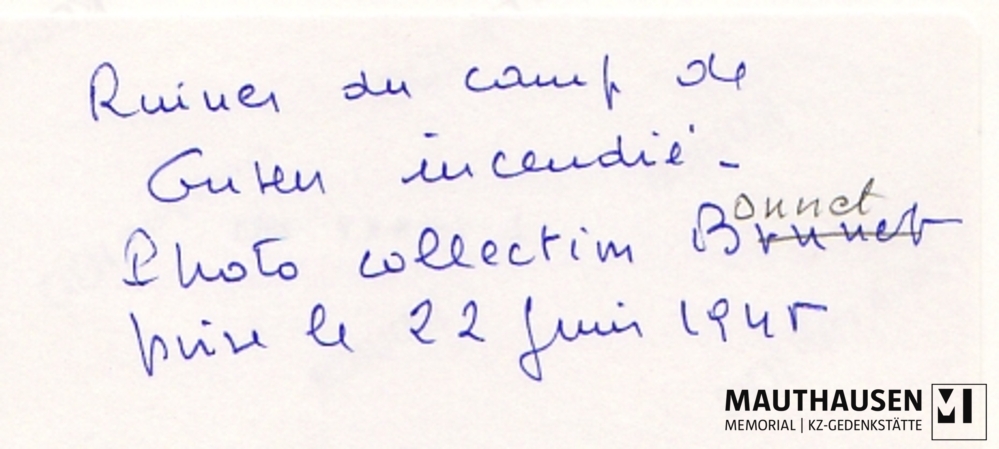 Ruines du camp de
Gusen incendié -
Photo collection Bonnet
prise le 22 Juin 1945
MAUTHAUSEN
MEMORIAL | KZ-GEDENKSTÄTTE